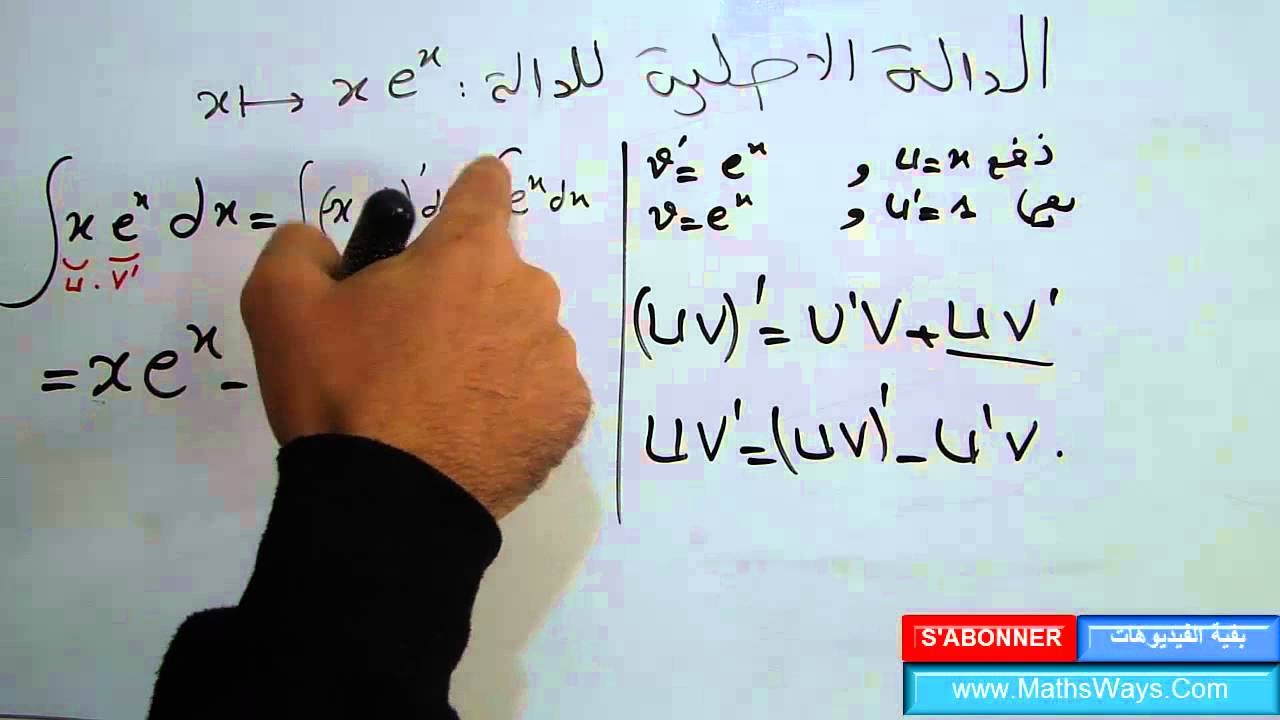 الدالة الاصلية للدالة : x ↦ x eˣ
∫ x eˣ dx = ∫ (x )' d eˣ dx
u . v'
= x eˣ -
نضع u = x , v' = eˣ
u' = 1 , v = eˣ
(uv)' = u'v + uv'
uv' = (uv)' - u'v .
S'ABONNER
بقية الفيديوهات
www.MathsWays.Com